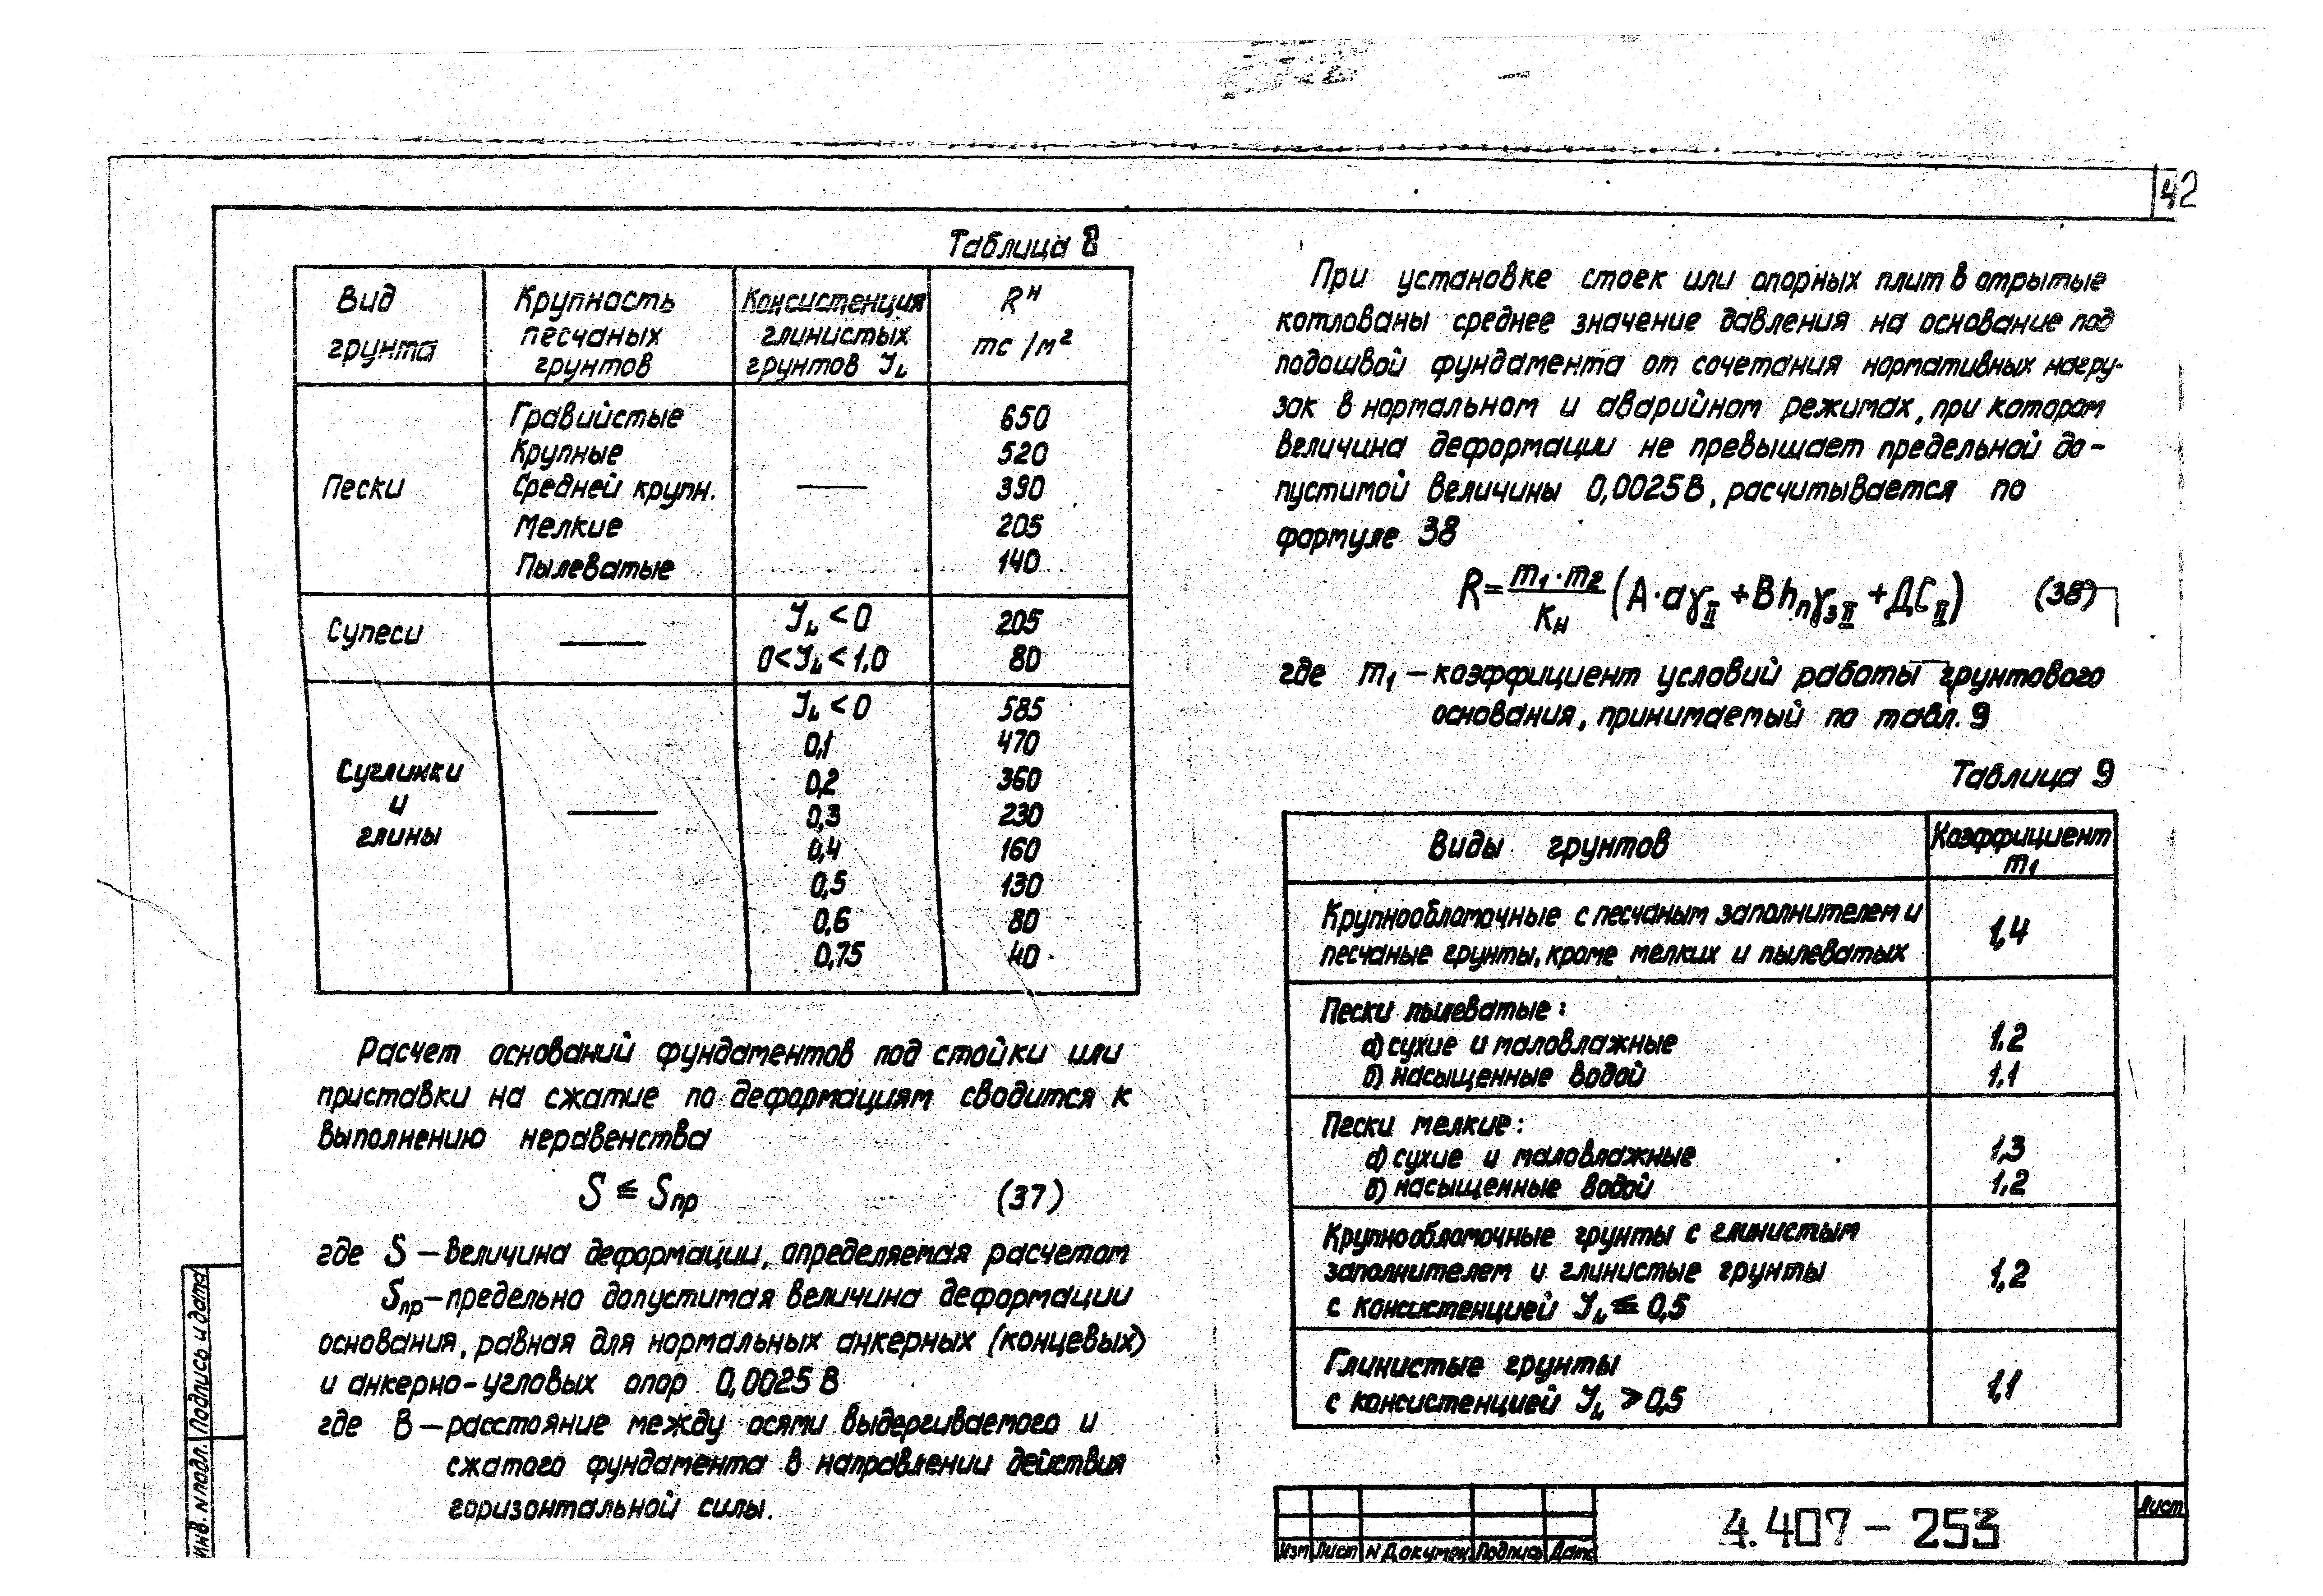 42
Таблица 8
Вид грунта | Крупность песчаных грунтов | Консистенция глинистых грунтов JL | Rн тс/м²
Пески | Гравийстые | —— | 650
Крупные | 520
Средней крупн. | 390
Мелкие | 205
Пылеватые | 140
Супеси | —— | JL < 0 | 205
0 < JL < 1,0 | 80
Суглинки и глины | —— | JL < 0 | 585
0,1 | 470
0,2 | 360
0,3 | 230
0,4 | 160
0,5 | 130
0,6 | 80
0,75 | 40
Расчет оснований фундаментов под стойки или
приставки на сжатие по деформациям сводится к
выполнению неравенства
S ≤ Sпр (37)
где S – величина деформации, определяемая расчетом
Sпр – предельно допустимая величина деформации
основания, равная для нормальных анкерных (концевых)
и анкерно-угловых опор 0,0025 В
где В – расстояние между осями выдергиваемого и
сжатого фундамента в направлении действия
горизонтальной силы.
При установке стоек или опорных плит в отрытые
котлованы среднее значение давления на основание под
подошвой фундамента от сочетания нормативных нагру-
зок в нормальном и аварийном режимах, при котором
величина деформации не превышает предельной до-
пустимой величины 0,0025В, расчитывается по
формуле 38
R = m1·m2/Kн (А·aγII + Вhпγ3II + ДСII) (38)
где m1 – коэффициент условий работы грунтового
основания, принимаемый по табл. 9
Таблица 9
Виды грунтов | Коэффициент m1
Крупнообломочные с песчаным заполнителем и
песчаные грунты, кроме мелких и пылеватых | 1,4
Пески пылеватые:
а) сухие и маловлажные | 1.2
б) насыщенные водой | 1.1
Пески мелкие:
а) сухие и маловлажные | 1,3
б) насыщенные водой | 1,2
Крупнообломочные грунты с глинистым
заполнителем и глинистые грунты
с консистенцией JL ≤ 0,5 | 1,2
Глинистые грунты
с консистенцией JL ⩾ 0,5 | 1,1
Инв. N подл. | Подпись и дата
Изм | Лист | N Докумен | Подпись | Дата
4.407 – 253
Лист